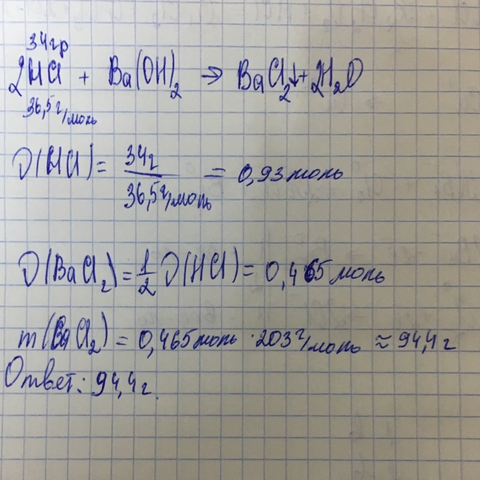 34гр
2HCl + Ba(OH)₂ → BaCl₂↓ + 2H₂O
36,5г/моль
ν(HCl) = 34г / 36,5г/моль = 0,93моль
ν(BaCl₂) = 1/2 ν(HCl) = 0,465моль
m(BaCl₂) = 0,465моль · 203г/моль ≈ 94,4г
Ответ: 94,4г.